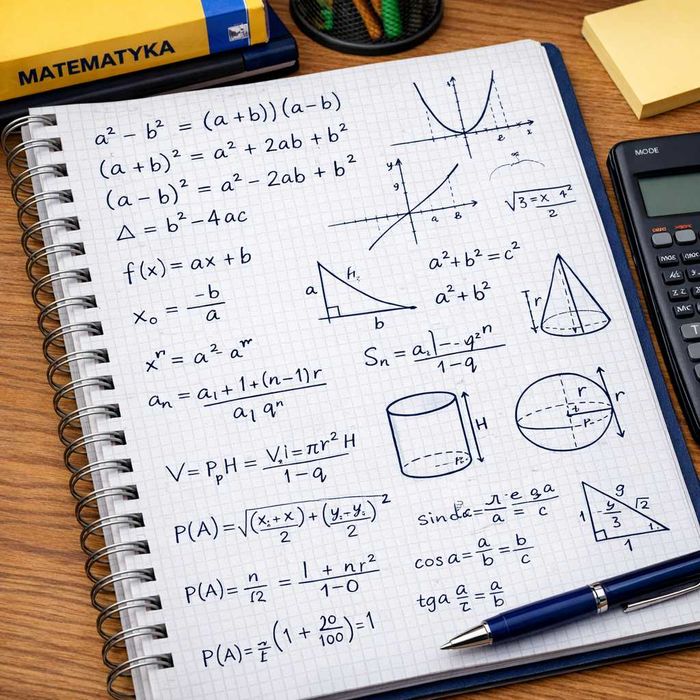 MATEMATYKA
a² - b² = (a+b))(a-b)
(a+b)² = a² + 2ab + b²
(a-b)² = a² - 2ab + b²
Δ = b² - 4ac
f(x) = ax + b
x₀ = -b/a
xⁿ = a² aᵐ
aₙ = a₁ + 1 + (n-1) r / a₁ qⁿ
V = PₚH = V.i = πr² H / 1-q
P(A) = √(x₂+x)/2 + (y₂-y₂)/2 ²
P(A) = n/12 = 1 + nr² / 1-0
P(A) = (1 + 20/100) = 1
x
y
9
a
B
√3 = x 4² / 2
a
b
a² + b² = c²
a² + b²
r
Sₙ = 1-q
H
r
r
r
sin a = c
cos a = a/b = b/c
tga a/τ = a/b
1
g
y/3
√2
1
MODE